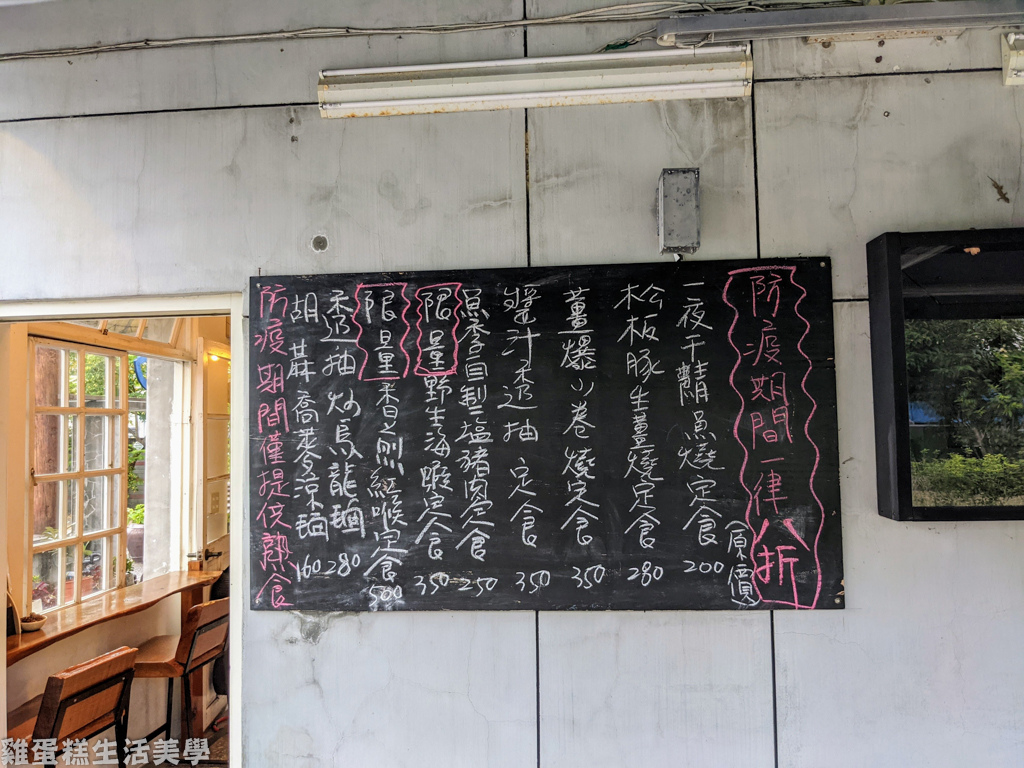 防疫期間一律八折
(原價)
一夜干鯖魚燒定食 200
松板豚生薑燒定食 280
薑爆小卷燒定食 350
醬汁透抽定食 350
魚香自製塩豬肉定食 250
限量野生海蝦定食 350
限量香煎紅喉定食 500
透抽炒烏龍麵 280
胡麻喬麥涼麵 160
防疫期間僅提供熱食
雞蛋糕生活美學